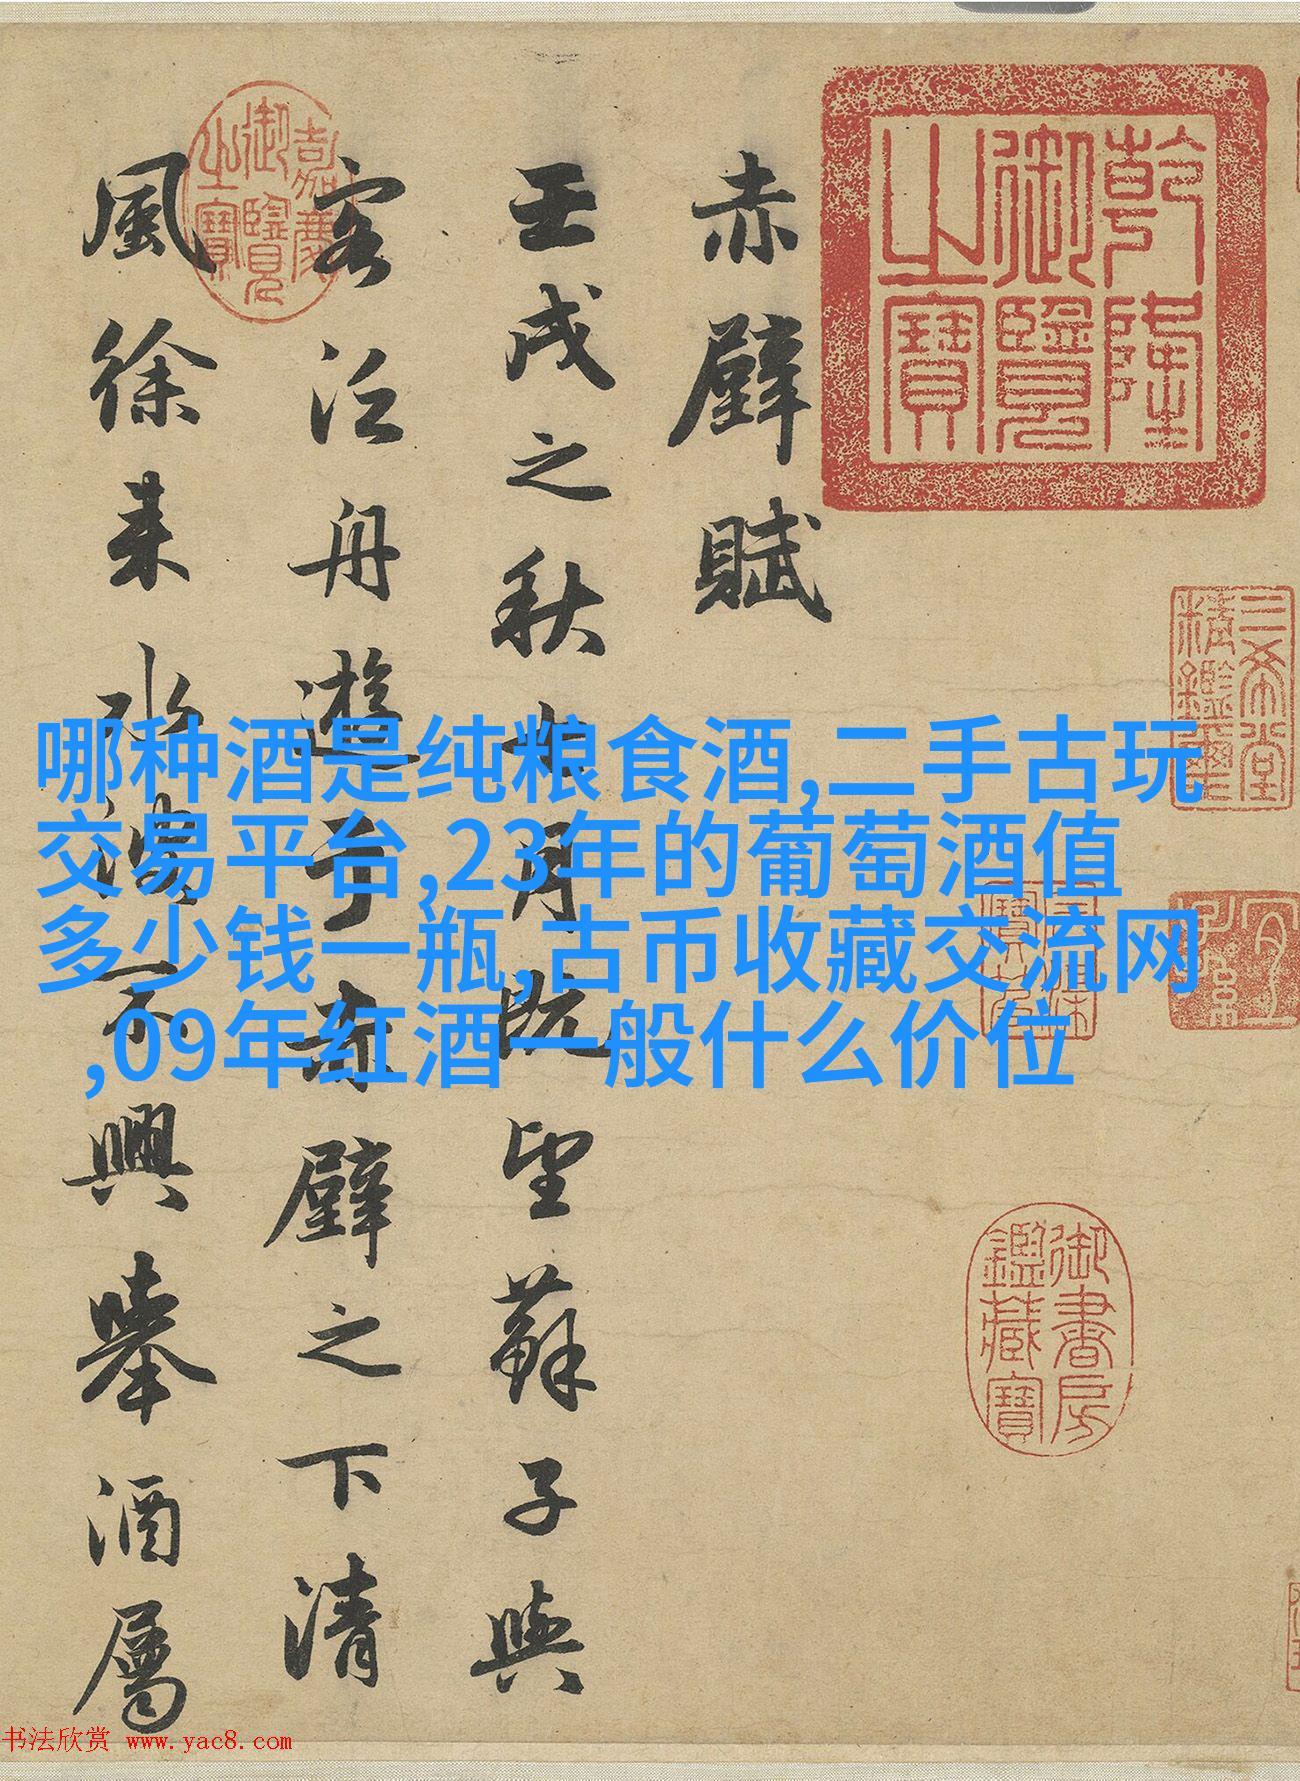 乾隆御覽之寶
三希堂精鑑璽
宜子孫
石渠寶笈
御書房鑑藏寶
赤壁賦
壬戌之秋七月既望蘇子與
客泛舟遊于赤壁之下清
嘉慶御覽之寶
風徐来水波不興舉酒屬
哪种酒是纯粮食酒,二手古玩
交易平台,23年的葡萄酒值
多少钱一瓶,古币收藏交流网
,09年红酒一般什么价位
书法欣赏 www.yac8.com